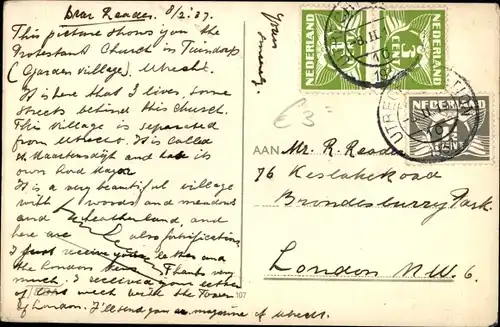 Dear Reader. 8/2.37.
This picture shows you the
Protestant Church in Tuindorp
(Garden Village). Utrecht.
It is here that I lives, some
streets behind this Church.
This village is separated
from Utrecht. It is called
Maartensdijk and has its
own Lord Mayor
It is a very beautiful village
with woods and meadows
and heatherland, and
here are also fortifications
I just receive your letter and
the London News. Thanks very
much. I received your letter
of last week with the Tower
of London. I'll send you a magazine of Utrecht.
Yours
€3=
NEDERLAND
3
CENT
NEDERLAND
3
CENT
UTRECHT
NEDERLAND
AAN
Mr. R. Reader
76
Brondesburry Park.
London N.W.6.
107